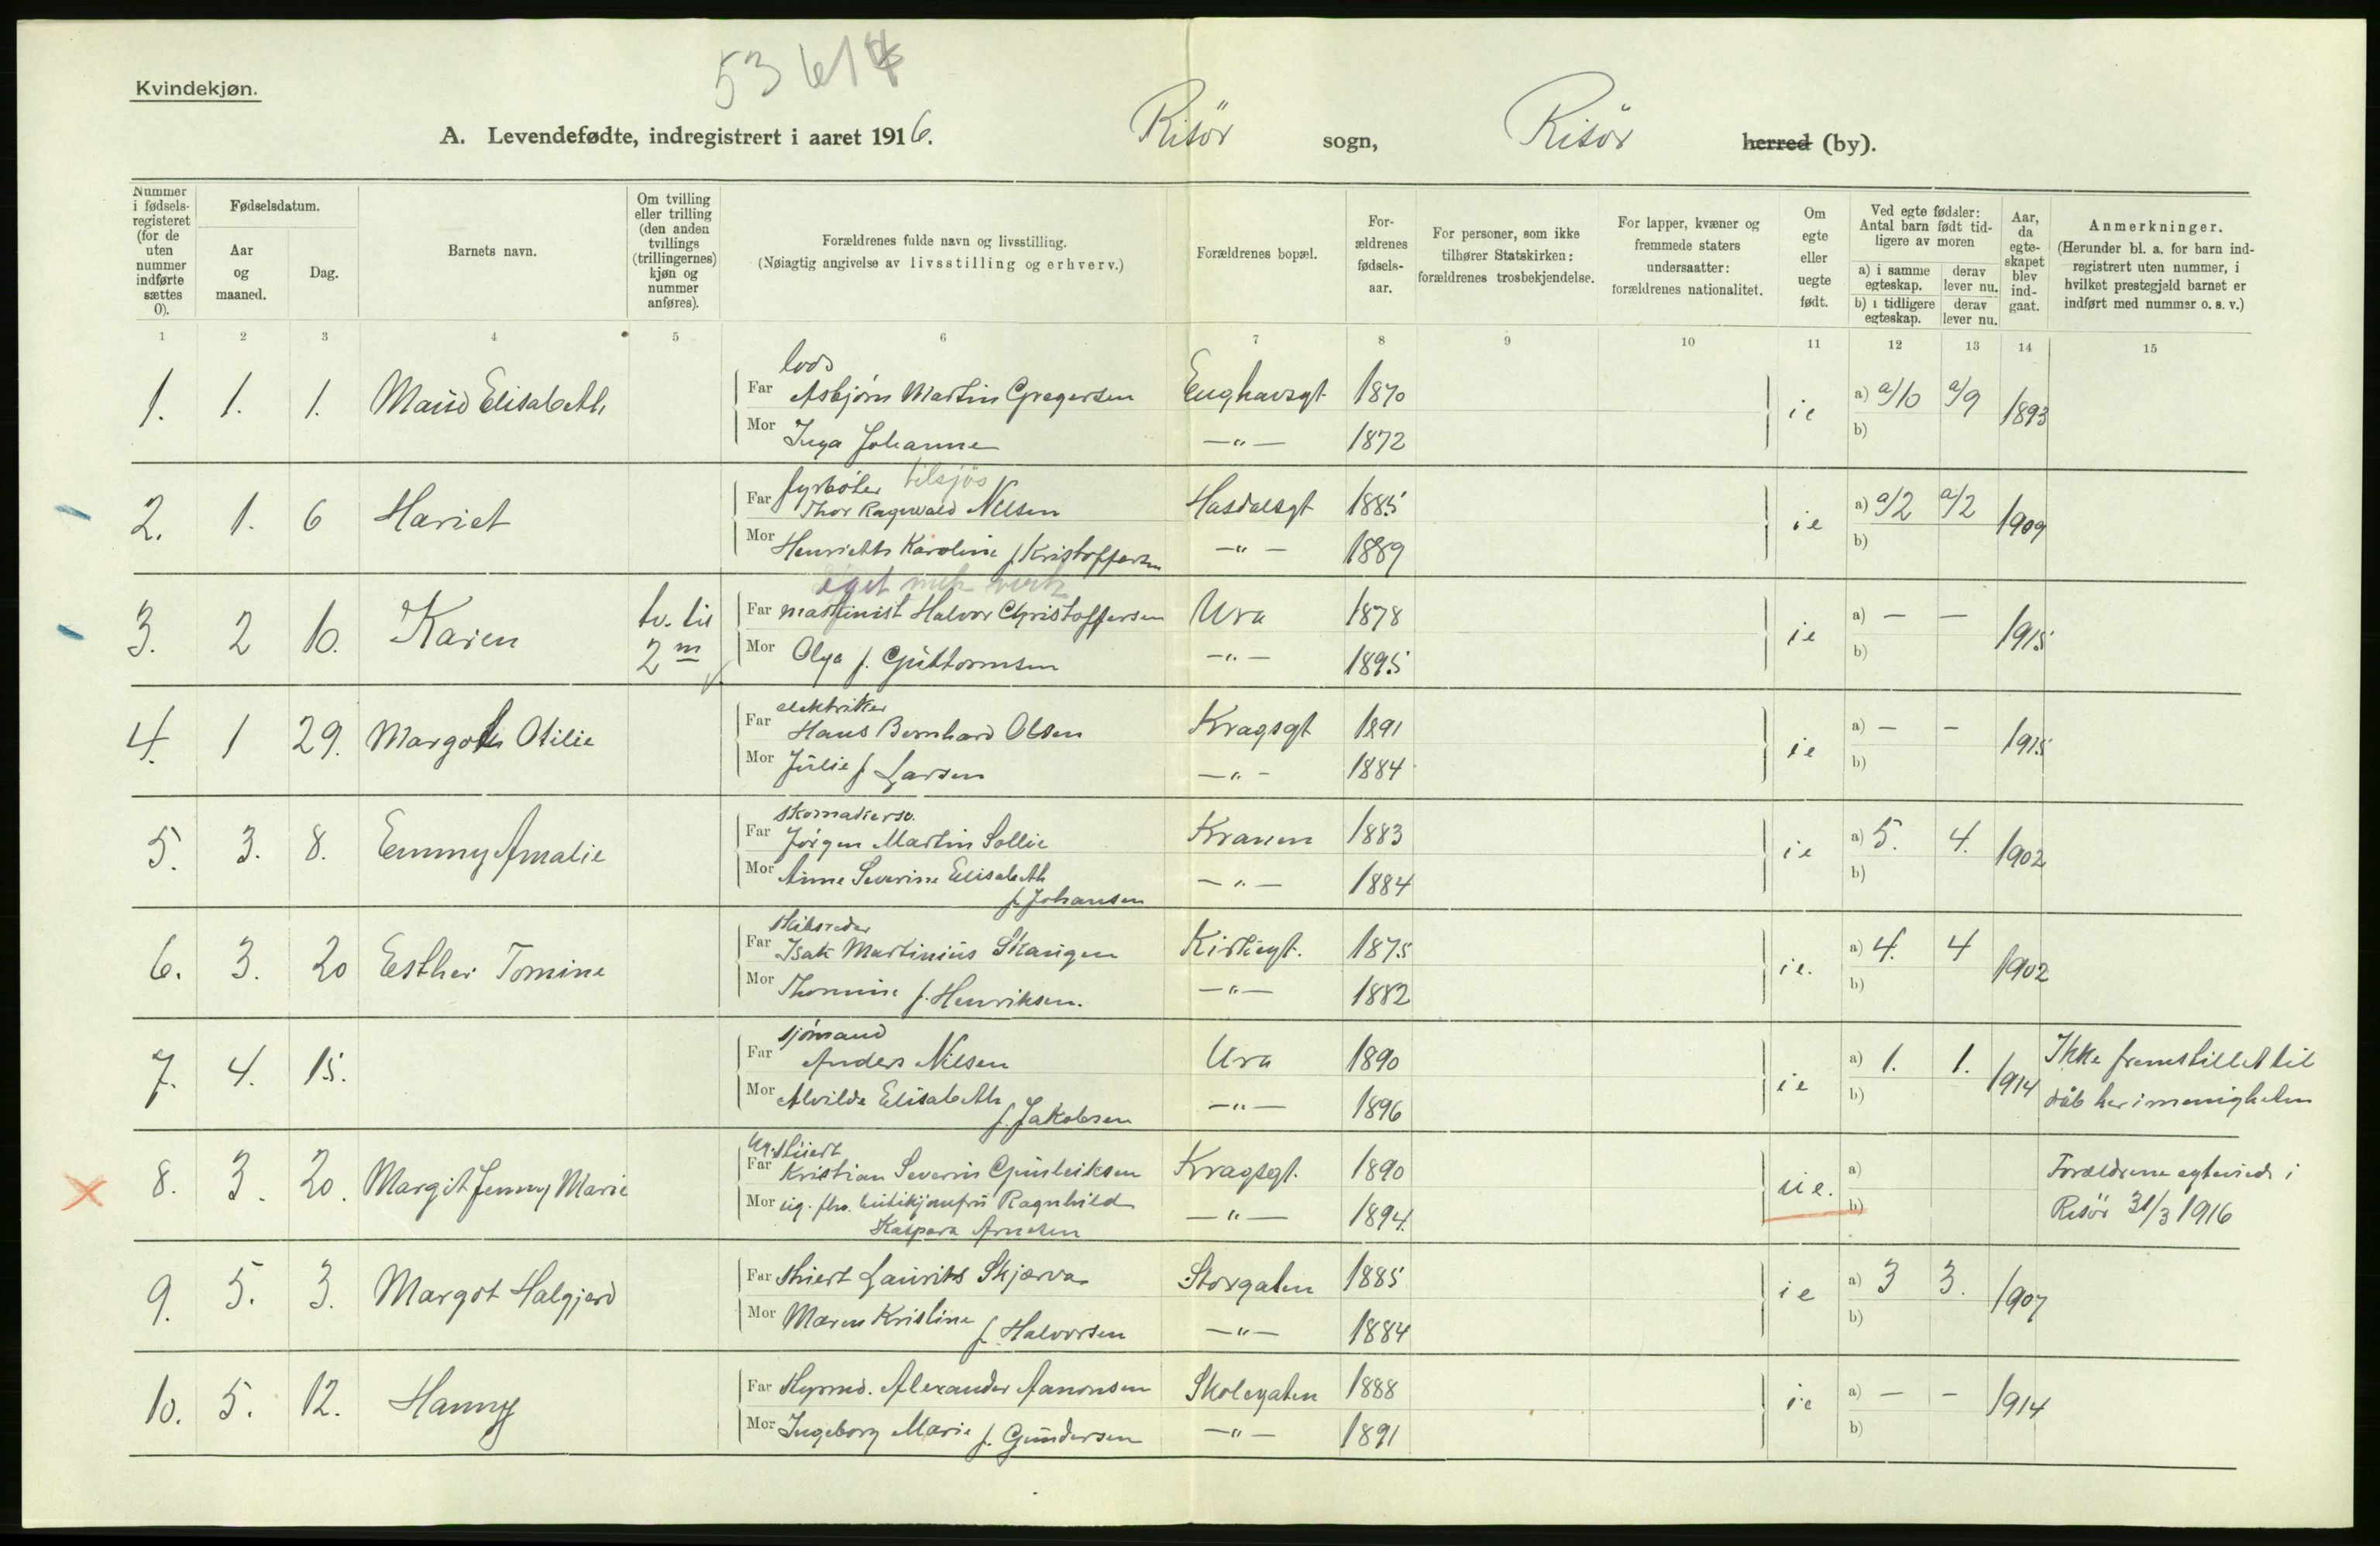 53 614
Kvindekjøn.
A. Levendefødte, indregistrert i aaret 1916. Risör sogn, Risör herred (by).
Nummer i fødsels-registeret (for de uten nummer indførte sættes 0).
Fødselsdatum.
Aar og maaned.
Dag.
Barnets navn.
Om tvilling eller trilling (den anden tvillings (trillingernes) kjøn og nummer anføres).
Forældrenes fulde navn og livsstilling.
(Nøiagtig angivelse av livsstilling og erhverv.)
Forældrenes bopæl.
For-ældrenes fødsels-aar.
For personer, som ikke tilhører Statskirken: forældrenes trosbekjendelse.
For lapper, kvæner og fremmede staters undersaatter: forældrenes nationalitet.
Om egte eller uegte født.
Ved egte fødsler: Antal barn født tid-ligere av moren
a) i samme egteskap. derav lever nu.
b) i tidligere egteskap. derav lever nu.
Aar, da egte-skapet blev ind-gaat.
Anmerkninger.
(Herunder bl. a. for barn ind-registrert uten nummer, i hvilket prestegjeld barnet er indført med nummer o. s. v.)
1 2 3 4 5 6 7 8 9 10 11 12 13 14 15
lods
1. 1. 1. Maud Elisabeth Far Asbjørn Martin Gregersen Enghavsgt 1870 ie a) a/10 a/9 1893
Mor Inga Johanne —"— 1872 b)
fyrböter tilsjös
2. 1. 6 Hariet Far Thor Ragnvald Nilsen Hasdalsgt 1885 ie a) a/2 a/2 1909
Mor Henriette Karoline f. Kristoffersen —"— 1889 b)
eget mek verk
3. 2 10. Karen tv. til 2 m Far maskinist Halvor Christoffersen Ura 1878 ie a) — — 1915
Mor Olga f. Guttormsen —"— 1895 b)
elektriker
4. 1 29. Margoth Otilie Far Hans Bernhard Olsen Kragsgt 1891 ie a) — — 1915
Mor Julie f. Larsen —"— 1884 b)
skomakersv.
5. 3. 8. Emmy Amalie Far Jörgen Martin Sollie Kranen 1883 ie a) 5. 4. 1902
Mor Anne Severine Elisabeth f. Johansen —"— 1884 b)
skibsreder
6. 3. 20 Esther Tomine Far Isak Martinius Skaugen Kirkegt. 1875 ie. a) 4. 4 1902
Mor Thomine f. Henriksen. —"— 1882 b)
sjömand
7. 4. 15. Far Anders Nilsen Ura 1890 ie a) 1. 1. 1914 Ikke fremstillet til
Mor Alvilde Elisabeth f. Jakobsen —"— 1896 b) dåb her i menigheten
8. 3. 20. Margit Jenny Marie Far Kristian Severin Gunleiksen Kragsgt. 1890 ue. a) Forældrene egteviede i
Mor ug. fhv. butikjomfru Ragnhild Kaspara Arnesen —"— 1894. b) Risör 31/3 1916
9. 5. 3. Margot Halgjerd Far Stuert Laurits Skjærva Storgaten 1885 ie a) 3 3. 1907
Mor Maren Kristine f. Halvorsen —"— 1884 b)
10. 5. 12. Hanny Far Styrmd. Alexander Aanonsen Skolegaten 1888 ie a) — — 1914
Mor Ingeborg Marie f. Gundersen —"— 1891 b)